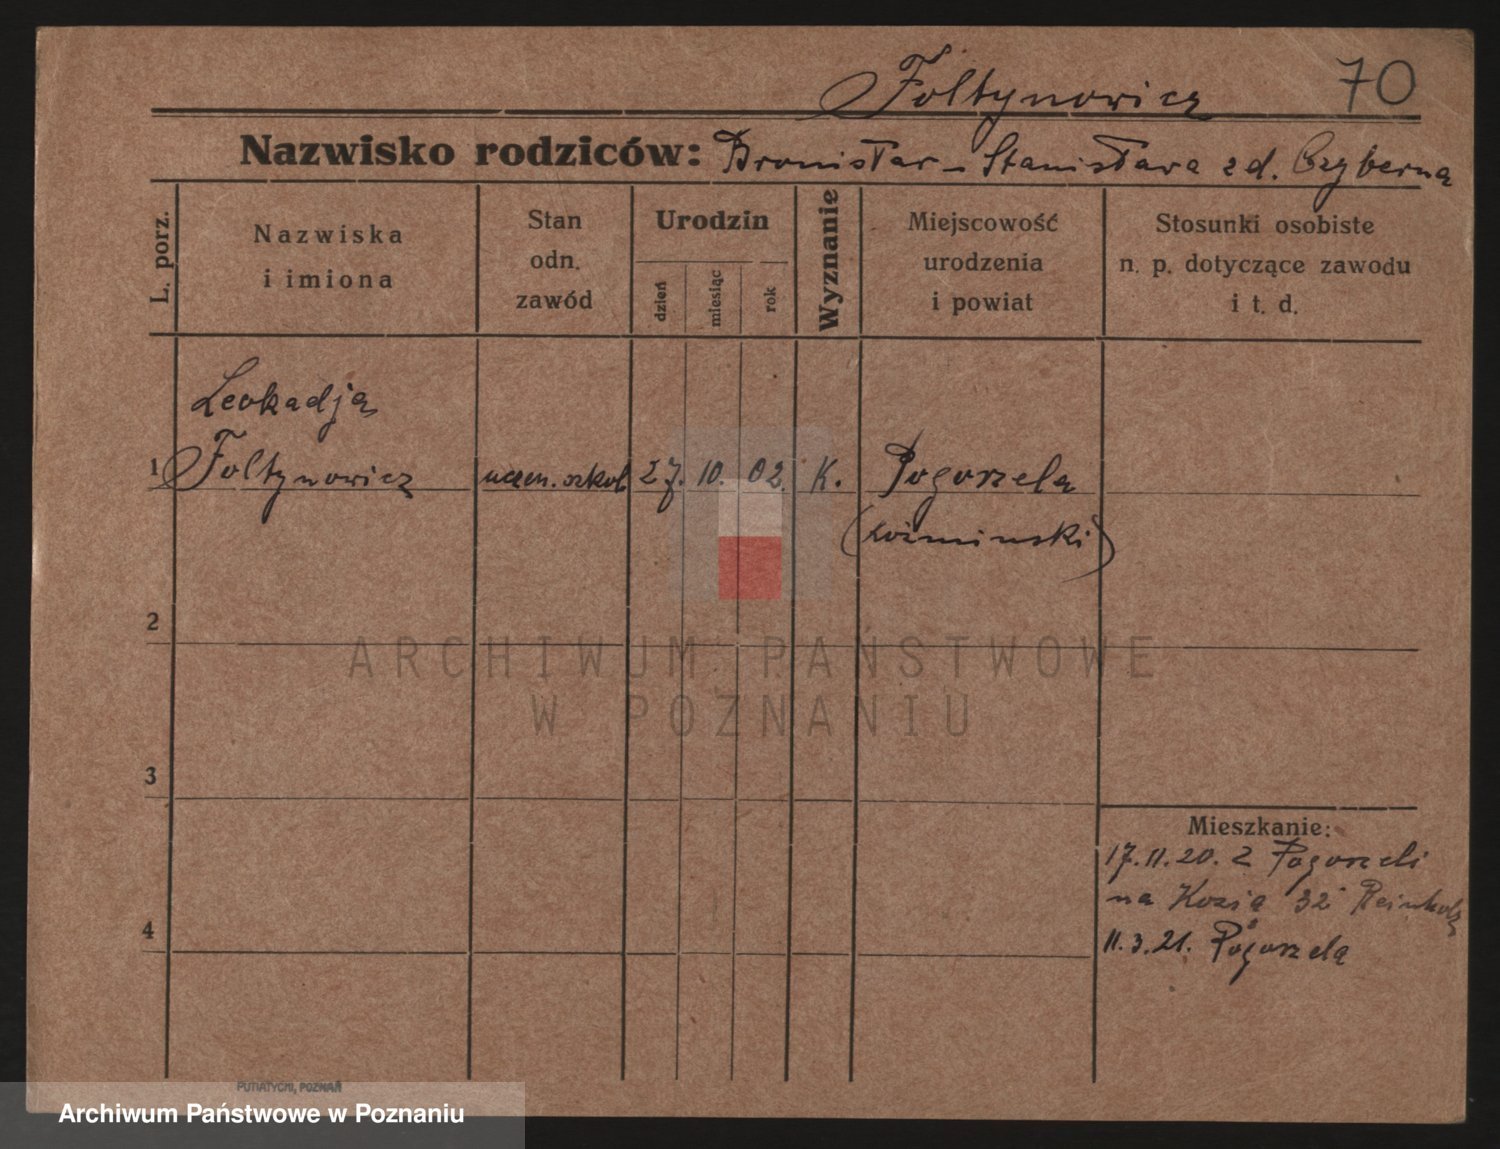 Foltynowicz 70
Nazwisko rodziców: Bronisław – Stanisława z d. Czyberna
L. porz.
Nazwiska
i imiona
Stan
odn.
zawód
Urodzin
dzień
miesiąc
rok
Wyznanie
Miejscowość
urodzenia
i powiat
Stosunki osobiste
n. p. dotyczące zawodu
i t. d.
Leokadja
1 Foltynowicz uczen. szkol. 27. 10. 02. K. Pogorzela
(koźminski)
2
ARCHIWUM PAŃSTWOWE
W POZNANIU
3
Mieszkanie:
17.11.20. z Pogorzeli
na Kozia 32 Reinholz
4
11.3.21. Pogorzela
PUTIATYCKI, POZNAŃ
Archiwum Państwowe w Poznaniu